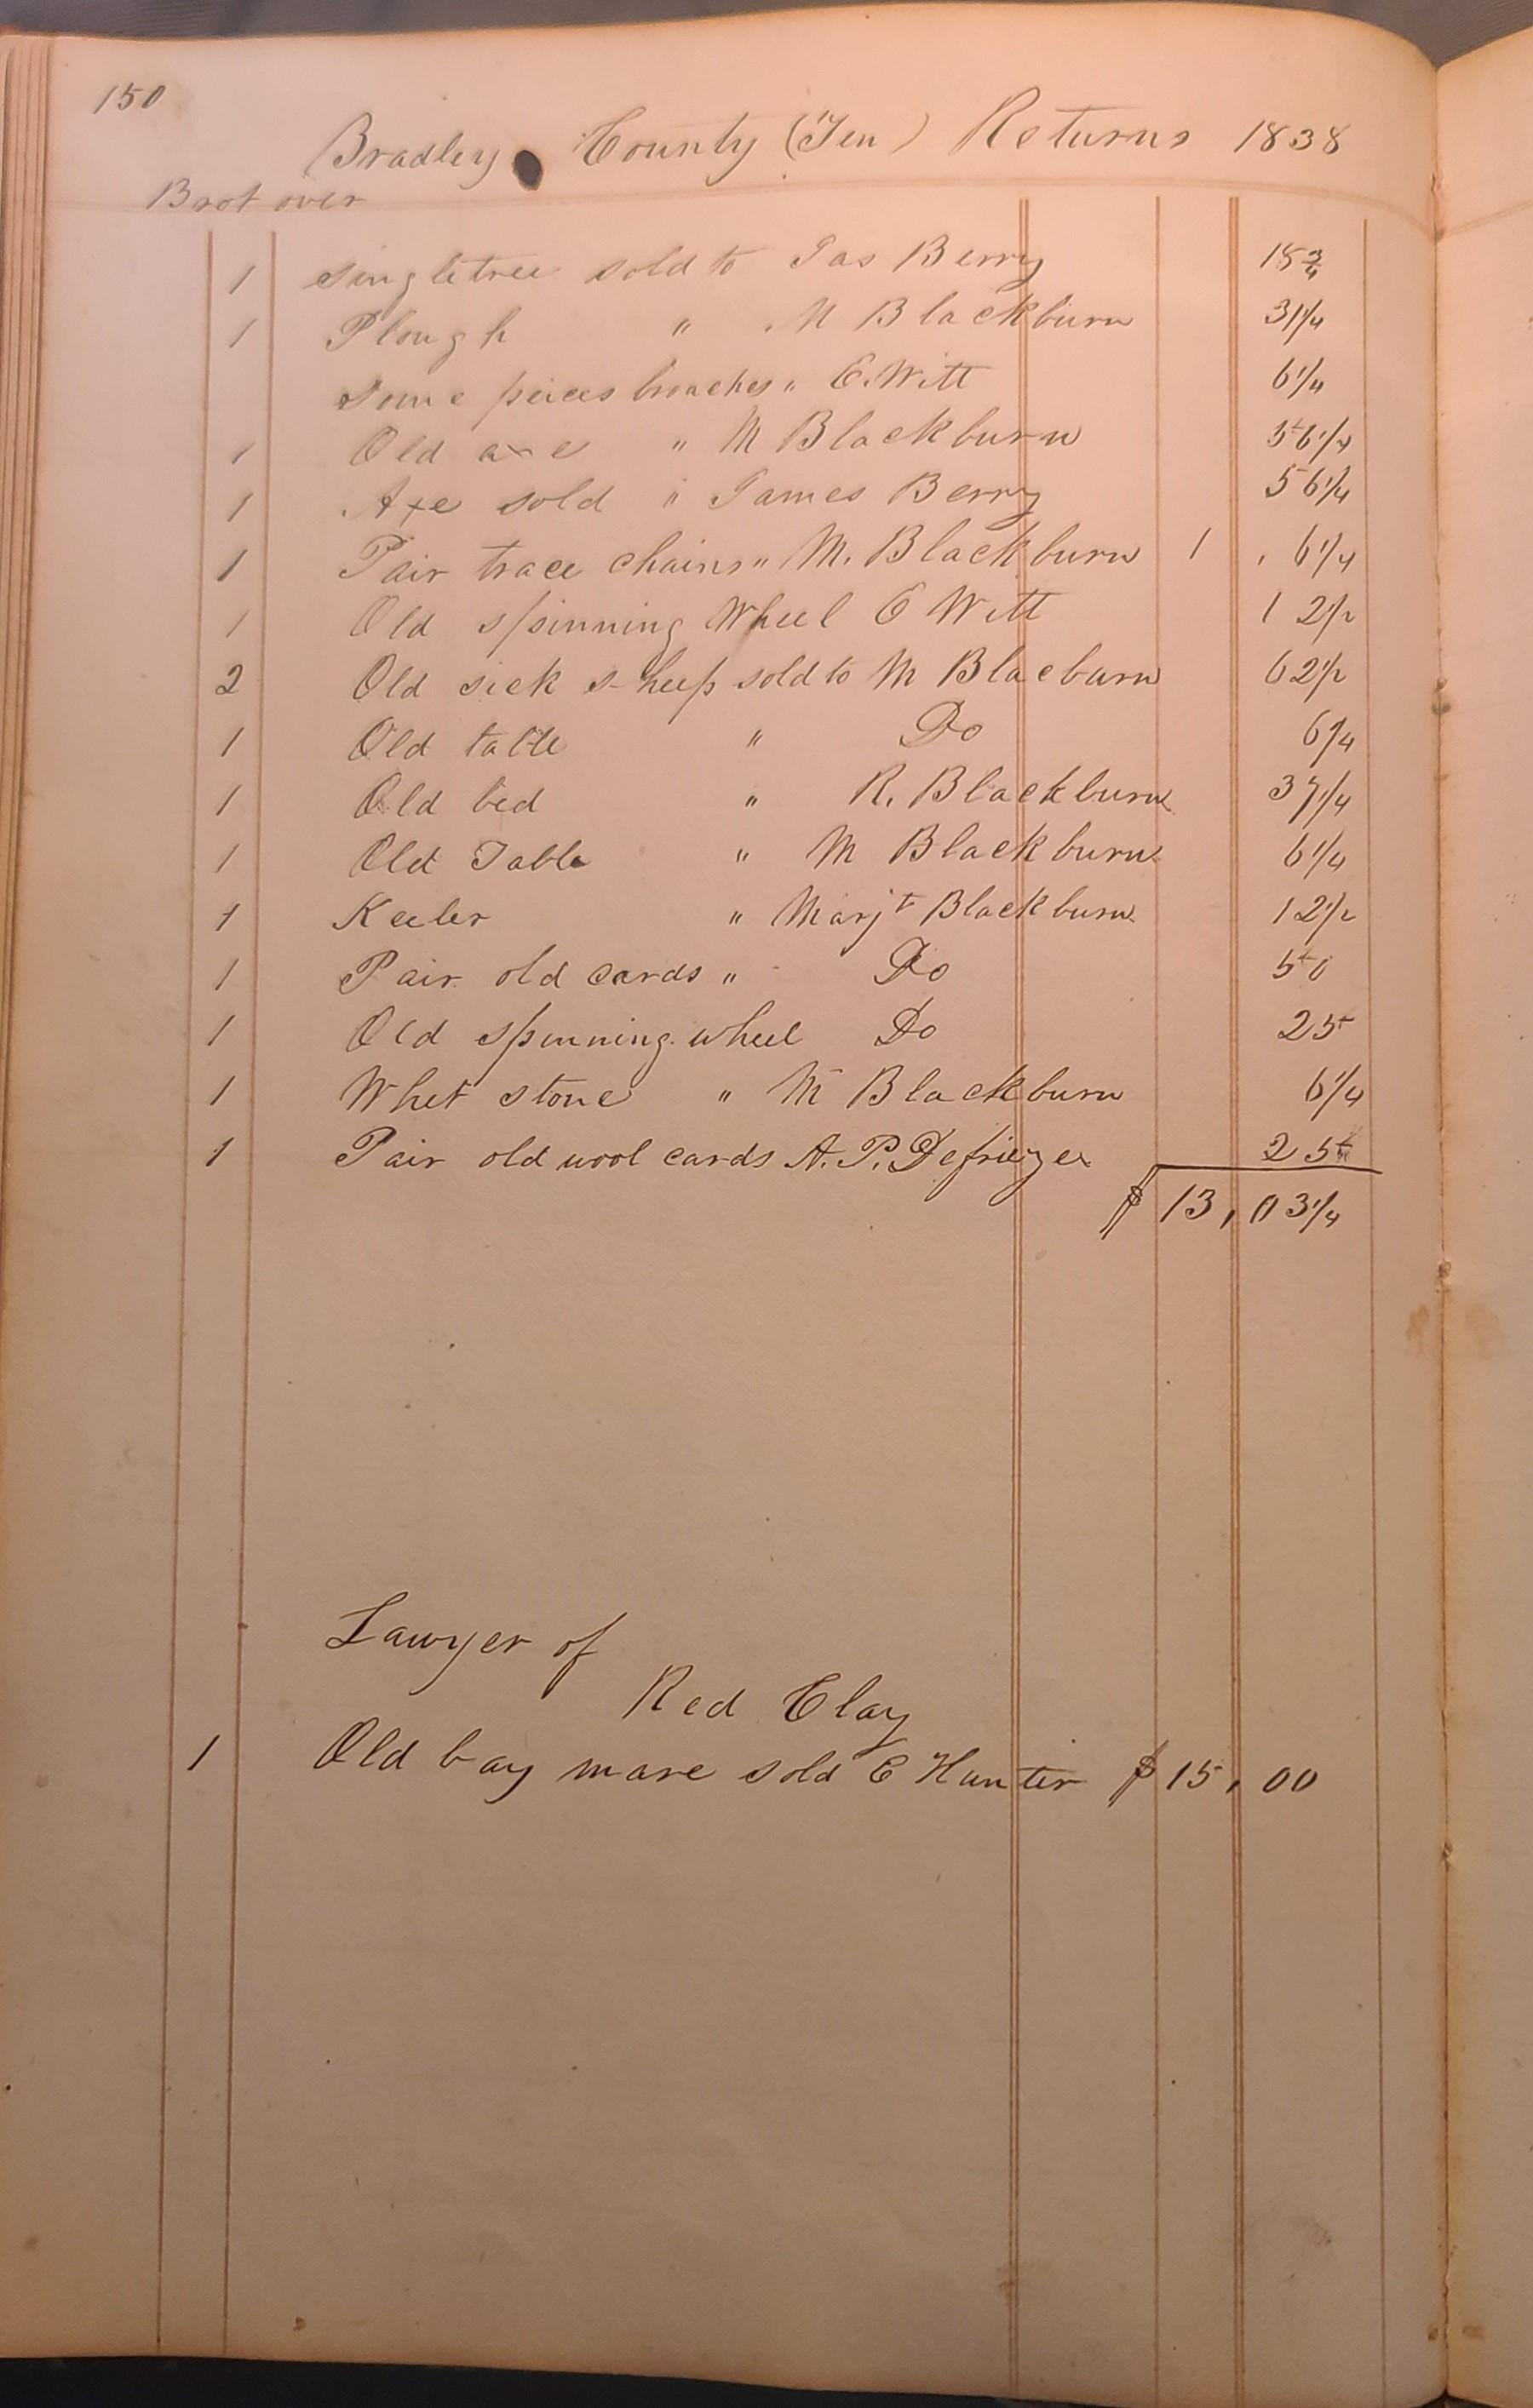 150
Bradley County (Ten) Returns 1838
Brot over
1 Singletree sold to Jas Berry 18 3/4
1 Plough " M Blackburn 31 1/4
Some peices broaches " E. Witt 6 1/4
1 Old axe " M Blackburn 56 1/4
1 Axe sold " James Berry 56 1/4
1 Pair trace chains " M. Blackburn 1 . 6 1/4
1 Old spinning Wheel E Witt 12 1/2
2 Old sick sheep sold to M Blacburn 62 1/2
1 Old table " Do 6 1/4
1 Old bed " R. Blackburn 37 1/4
1 Old Table " M Blackburn 6 1/4
1 Keeler " Marjt Blackburn 12 1/2
1 Pair old cards " Do 50
1 Old spinning wheel Do 25
1 Whet stone " M Blackburn 6 1/4
1 Pair old wool cards A. P. 25
$ 13,03 1/4
Lawyer of
Red Clay
1 Old bay mare sold E Hunter $ 15,00